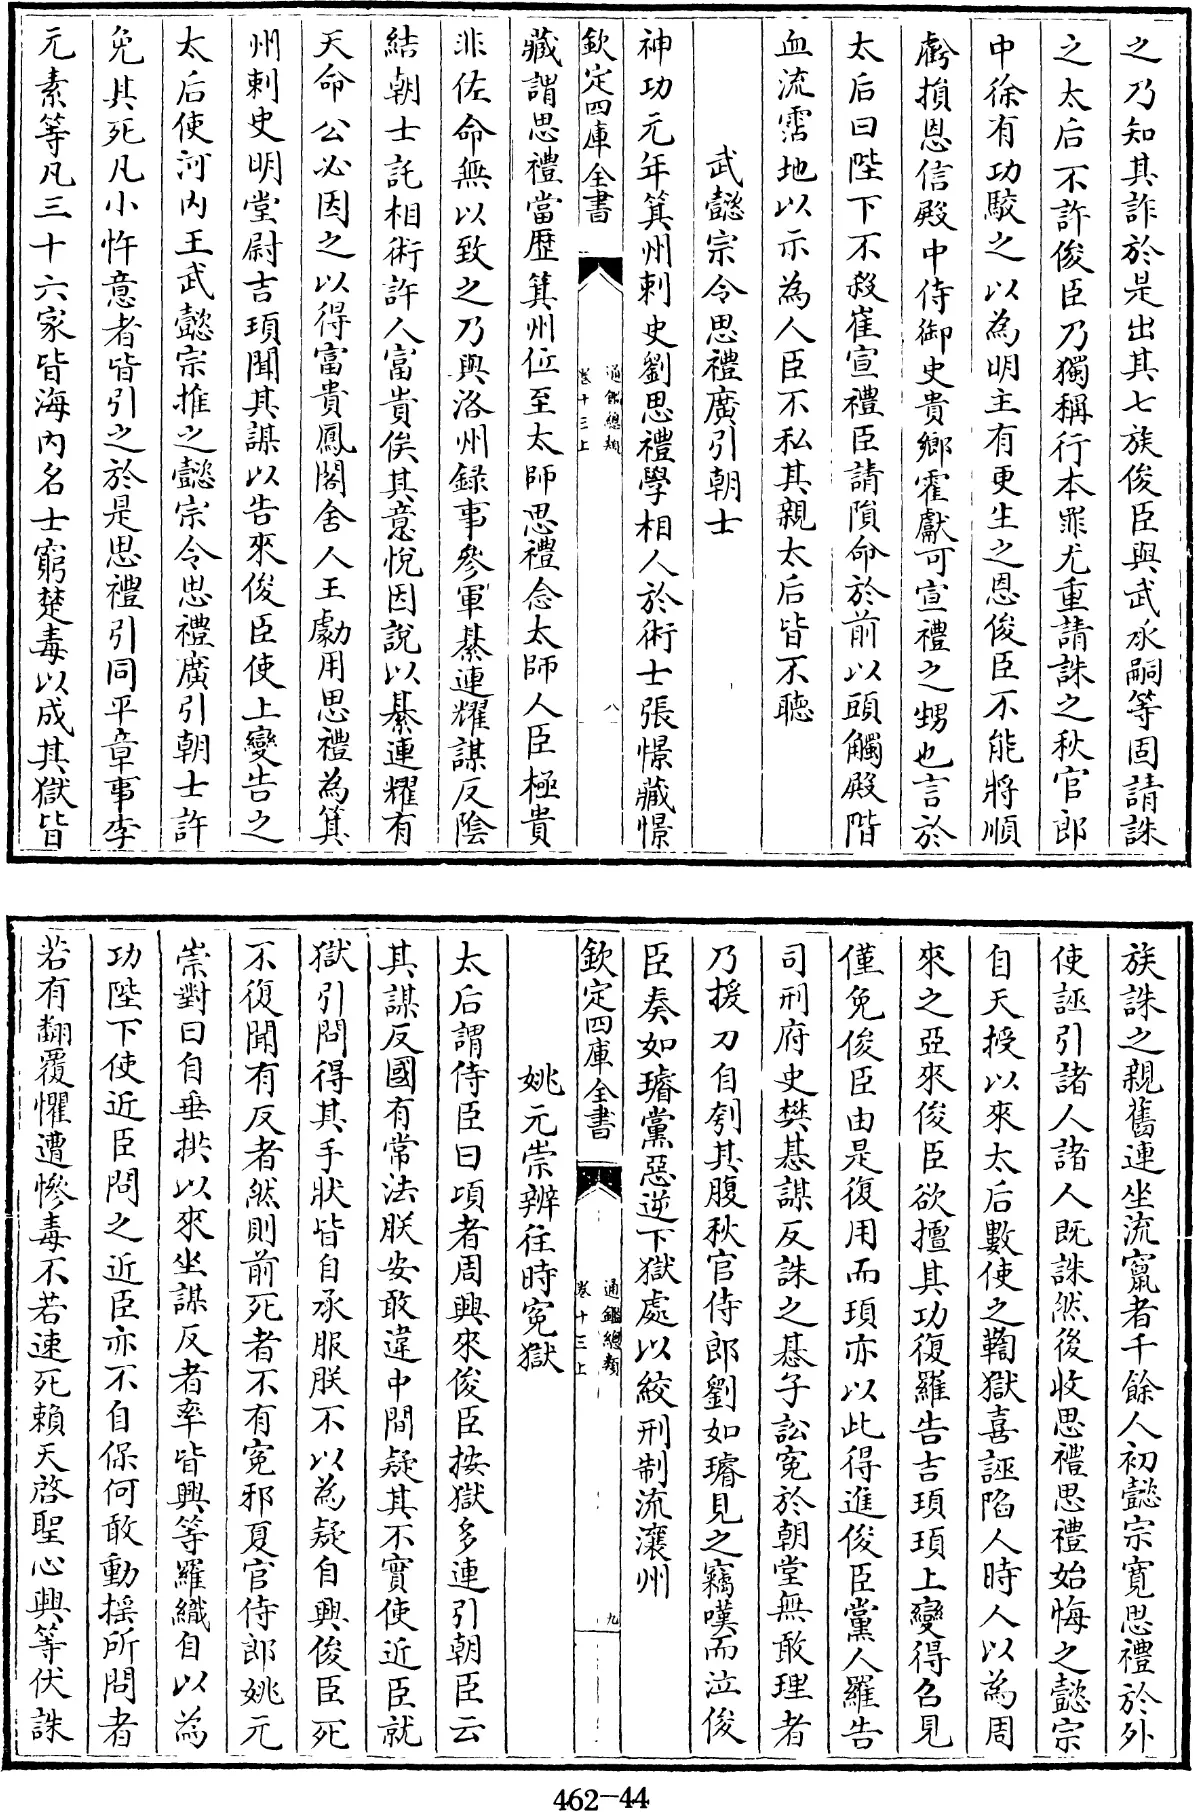 之乃知其詐於是出其七族俊臣與武承嗣等固請誅
之太后不許俊臣乃獨稱行本罪尤重請誅之秋官郎
中徐有功駮之以為明主有更生之恩俊臣不能將順
虧損恩信殿中侍御史貴鄉霍獻可宣禮之甥也言於
太后曰陛下不殺崔宣禮臣請隕命於前以頭觸殿階
血流霑地以示為人臣不私其親太后皆不聽
武懿宗令思禮廣引朝士
神功元年箕州刺史劉思禮學相人於術士張憬藏憬
欽定四庫全書
通鑑總類
卷十三上
八
藏謂思禮當歷箕州位至太師思禮念太師人臣極貴
非佐命無以致之乃與洛州録事參軍綦連耀謀反陰
結朝士託相術許人富貴俟其意悅因說以綦連耀有
天命公必因之以得富貴鳳閣舍人王勮用思禮為箕
州刺史明堂尉吉頊聞其謀以告來俊臣使上變告之
太后使河內王武懿宗推之懿宗令思禮廣引朝士許
免其死凡小忤意者皆引之於是思禮引同平章事李
元素等凡三十六家皆海內名士窮楚毒以成其獄皆
族誅之親舊連坐流竄者千餘人初懿宗寛思禮於外
使誣引諸人諸人既誅然後收思禮思禮始悔之懿宗
自天授以來太后數使之鞫獄喜誣陷人時人以為周
來之亞來俊臣欲擅其功復羅告吉頊頊上變得召見
僅免俊臣由是復用而頊亦以此得進俊臣黨人羅告
司刑府史樊惎謀反誅之惎子訟寃於朝堂無敢理者
乃援刀自刳其腹秋官侍郎劉如璿見之竊嘆而泣俊
臣奏如璿黨惡逆下獄處以絞刑制流瀼州
欽定四庫全書
通鑑總類
卷十三上
九
姚元崇辨往時寃獄
太后謂侍臣曰頃者周興來俊臣按獄多連引朝臣云
其謀反國有常法朕安敢違中間疑其不實使近臣就
獄引問得其手狀皆自承服朕不以為疑自興俊臣死
不復聞有反者然則前死者不有寃邪夏官侍郎姚元
崇對曰自垂拱以來坐謀反者率皆興等羅織自以為
功陛下使近臣問之近臣亦不自保何敢動搖所問者
若有翻覆懼遭慘毒不若速死賴天啓聖心興等伏誅
462-44